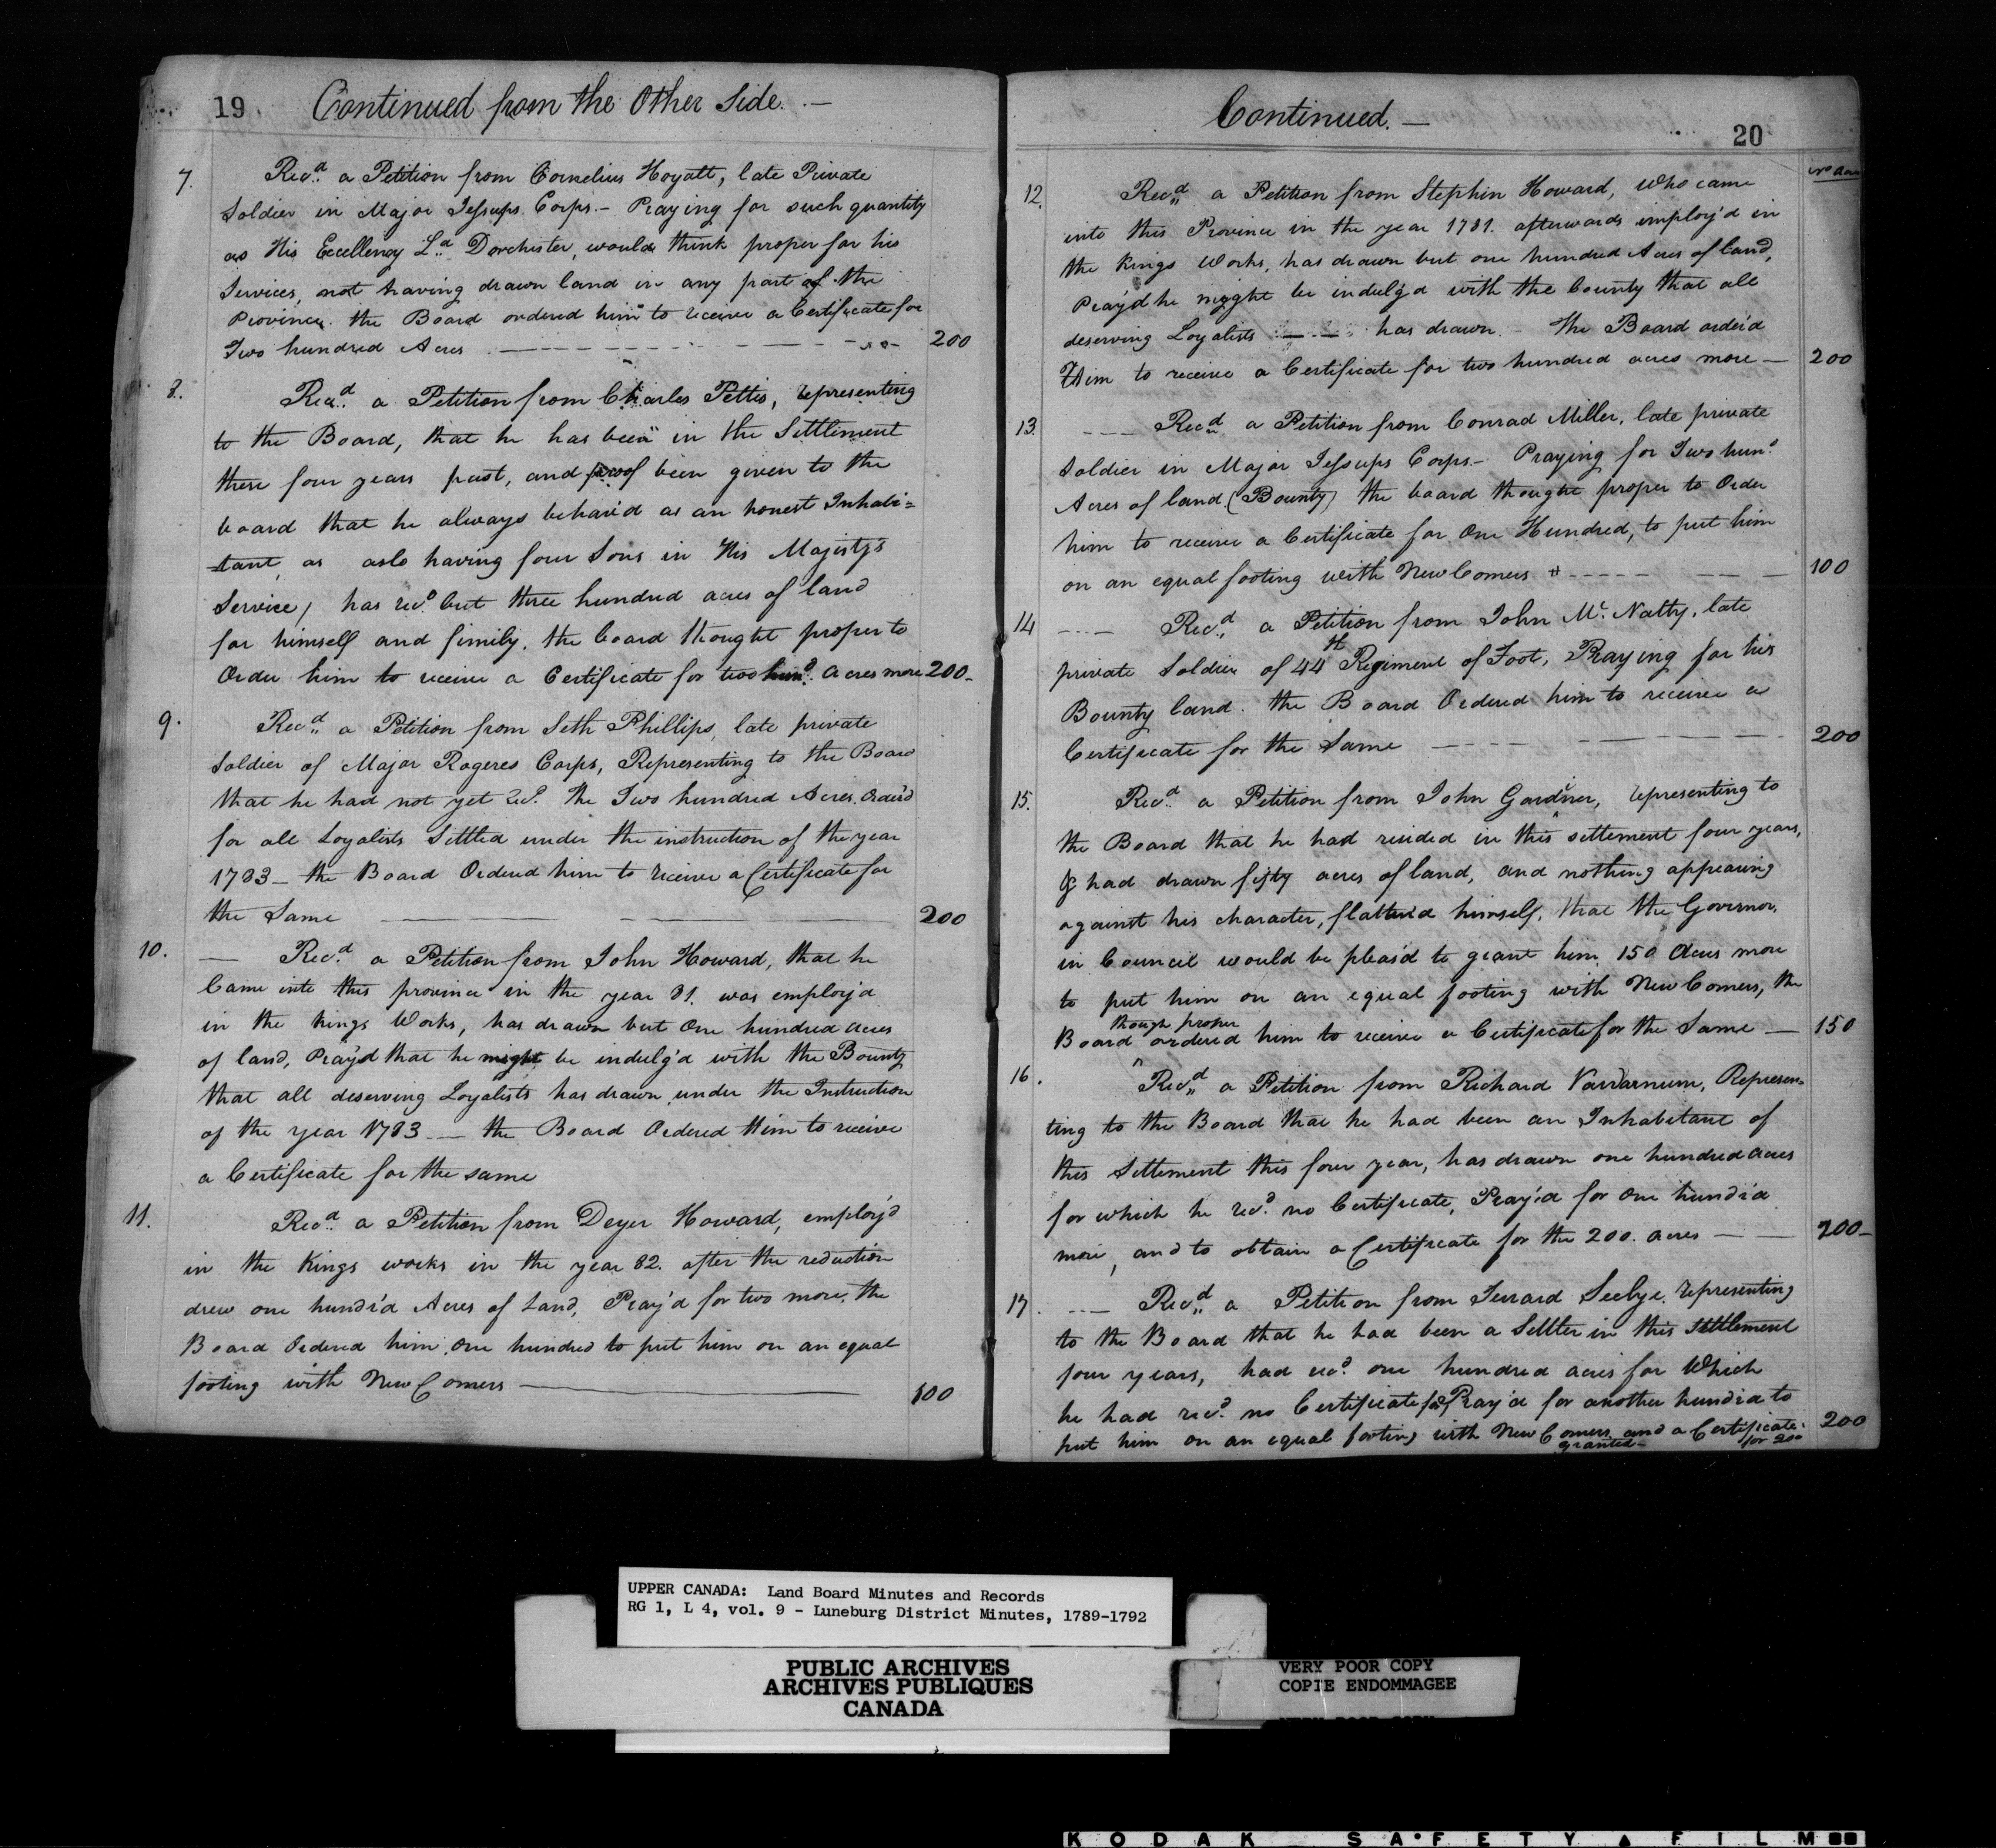 19 Continued from the Other Side. —
7. Recd. a Petition from Cornelius Hoyatt, late Private
Soldier in Major Jessups Corps.— Praying for such quantity
as His Excellency Ld. Dorchester, would think proper for his
Services, not having drawn land in any part of the
Province. the Board ordered him to receive a Certificate for
Two hundred Acres 200
8. Recd. a Petition from Charles Pettis, representing
to the Board, that he has been in the Settlement
these four years past, and proof been given to the
board that he always behav'd as an honest Inhabi=
tant, as aslo having four Sons in His Majesty's
Service, has recd. but three hundred acres of land
for himself and fimily. the board thought proper to
Order him to receive a Certificate for two hund. acres more 200-
9. Recd. a Petition from Seth Phillips, late private
Soldier of Major Rogeres Corps, Representing to the Board
that he had not yet recd. the Two hundred Acres Order'd
for all Loyalists Settled under the instruction of the year
1783— the Board Ordered him to receive a Certificate for
the Same — 200
10. — Recd. a Petition from John Howard, that he
Came into this province in the year 81. was employ'd
in the kings Works, has drawn but One hundred acres
of land, Pray'd that he might be indulg'd with the Bounty
that all deserving Loyalists has drawn under the Instruction
of the year 1783— the Board Ordered Him to receive
a Certificate for the same
11. Recd. a Petition from Deyer Howard, employ'd
in the Kings works in the year 82. after the reduction
drew one hundr'd Acres of Land, Pray'd for two more. the
Board Ordered him One hundred to put him on an equal
footing with New Comers — 100
Continued.— 20
12. Recd. a Petition from Stephin Howard, Who came
into this Province in the year 1781. afterwards employ'd in
the Kings Works, has drawn but one hundred Acres of land,
Pray'd he myght be indulg'd with the County that all
deserving Loyalists — — has drawn.— the Board order'd
Him to receive a Certificate for two hundred acres more — 200
13. Recd. a Petition from Conrad Miller, late private
Soldier in Major Jessups Corps— Praying for Two hund.
Acres of land (Bounty) the board thought proper to Order
him to receive a Certificate for One Hundred, to put him
on an equal footing with New Comers 100
14 Recd. a Petition from John Mc. Natty, late
private Soldier of 44th Regiment of Foot, Praying for his
Bounty land. the Board Ordered him to receive a
Certificate for the Same 200
15. Recd. a Petition from John Gardner, representing to
the Board that he had resided in this settlement four years,
& had drawn fifty acres of land, and nothing appearing
against his character, flatter'd himself, that the Governor
in Council would be pleas'd to grant him 150 Acres more
to put him on an equal footing with New Comers, the
though proper
Board ^ ordered him to receive a Certificate for the Same — 150
16. Recd. a Petition from Richard Vardarnum, Represen=
ting to the Board that he had been an Inhabitant of
this Settement this four year, has drawn one hundred acres
for which he recd. no Certificate, Pray'd for One hundr'd
more, and to obtain a Certificate for the 200. acres — — 200-
17. Recd. a Petition from Jerrard Seelye. representing
to the Board that he had been a Settler in this Settlement
four years, had recd. one hundred acres for Which
he had recd. no Certificate Pray'd for another hundr'd to
put him on an equal footing with New Comers and a Certificate 200
granted— for 200
UPPER CANADA: Land Board Minutes and Records
RG 1, L 4, vol. 9 - Luneburg District Minutes, 1789-1792
PUBLIC ARCHIVES
ARCHIVES PUBLIQUES
CANADA
VERY POOR COPY
COPIE ENDOMMAGEE
KODAK SAFETY FILM